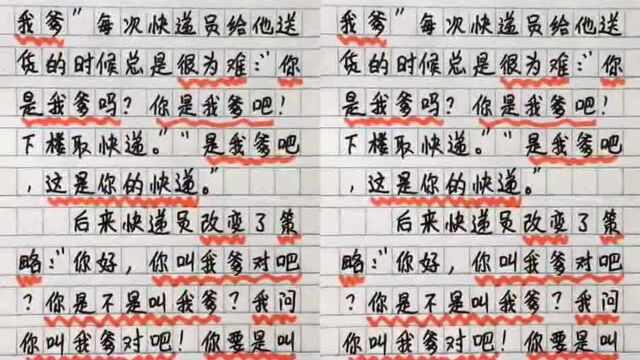 我爹”每次快递员给他送
货的时候总是很为难：“你
是我爹吗？你是我爹吧！
下楼取快递。”“是我爹吧
，这是你的快递。”
后来快递员改变了策
略：“你好，你叫我爹对吧
？你是不是叫我爹？我问
你叫我爹对吧！你要是叫
我爹”每次快递员给他送
货的时候总是很为难：“你
是我爹吗？你是我爹吧！
下楼取快递。”“是我爹吧
，这是你的快递。”
后来快递员改变了策
略：“你好，你叫我爹对吧
？你是不是叫我爹？我问
你叫我爹对吧！你要是叫